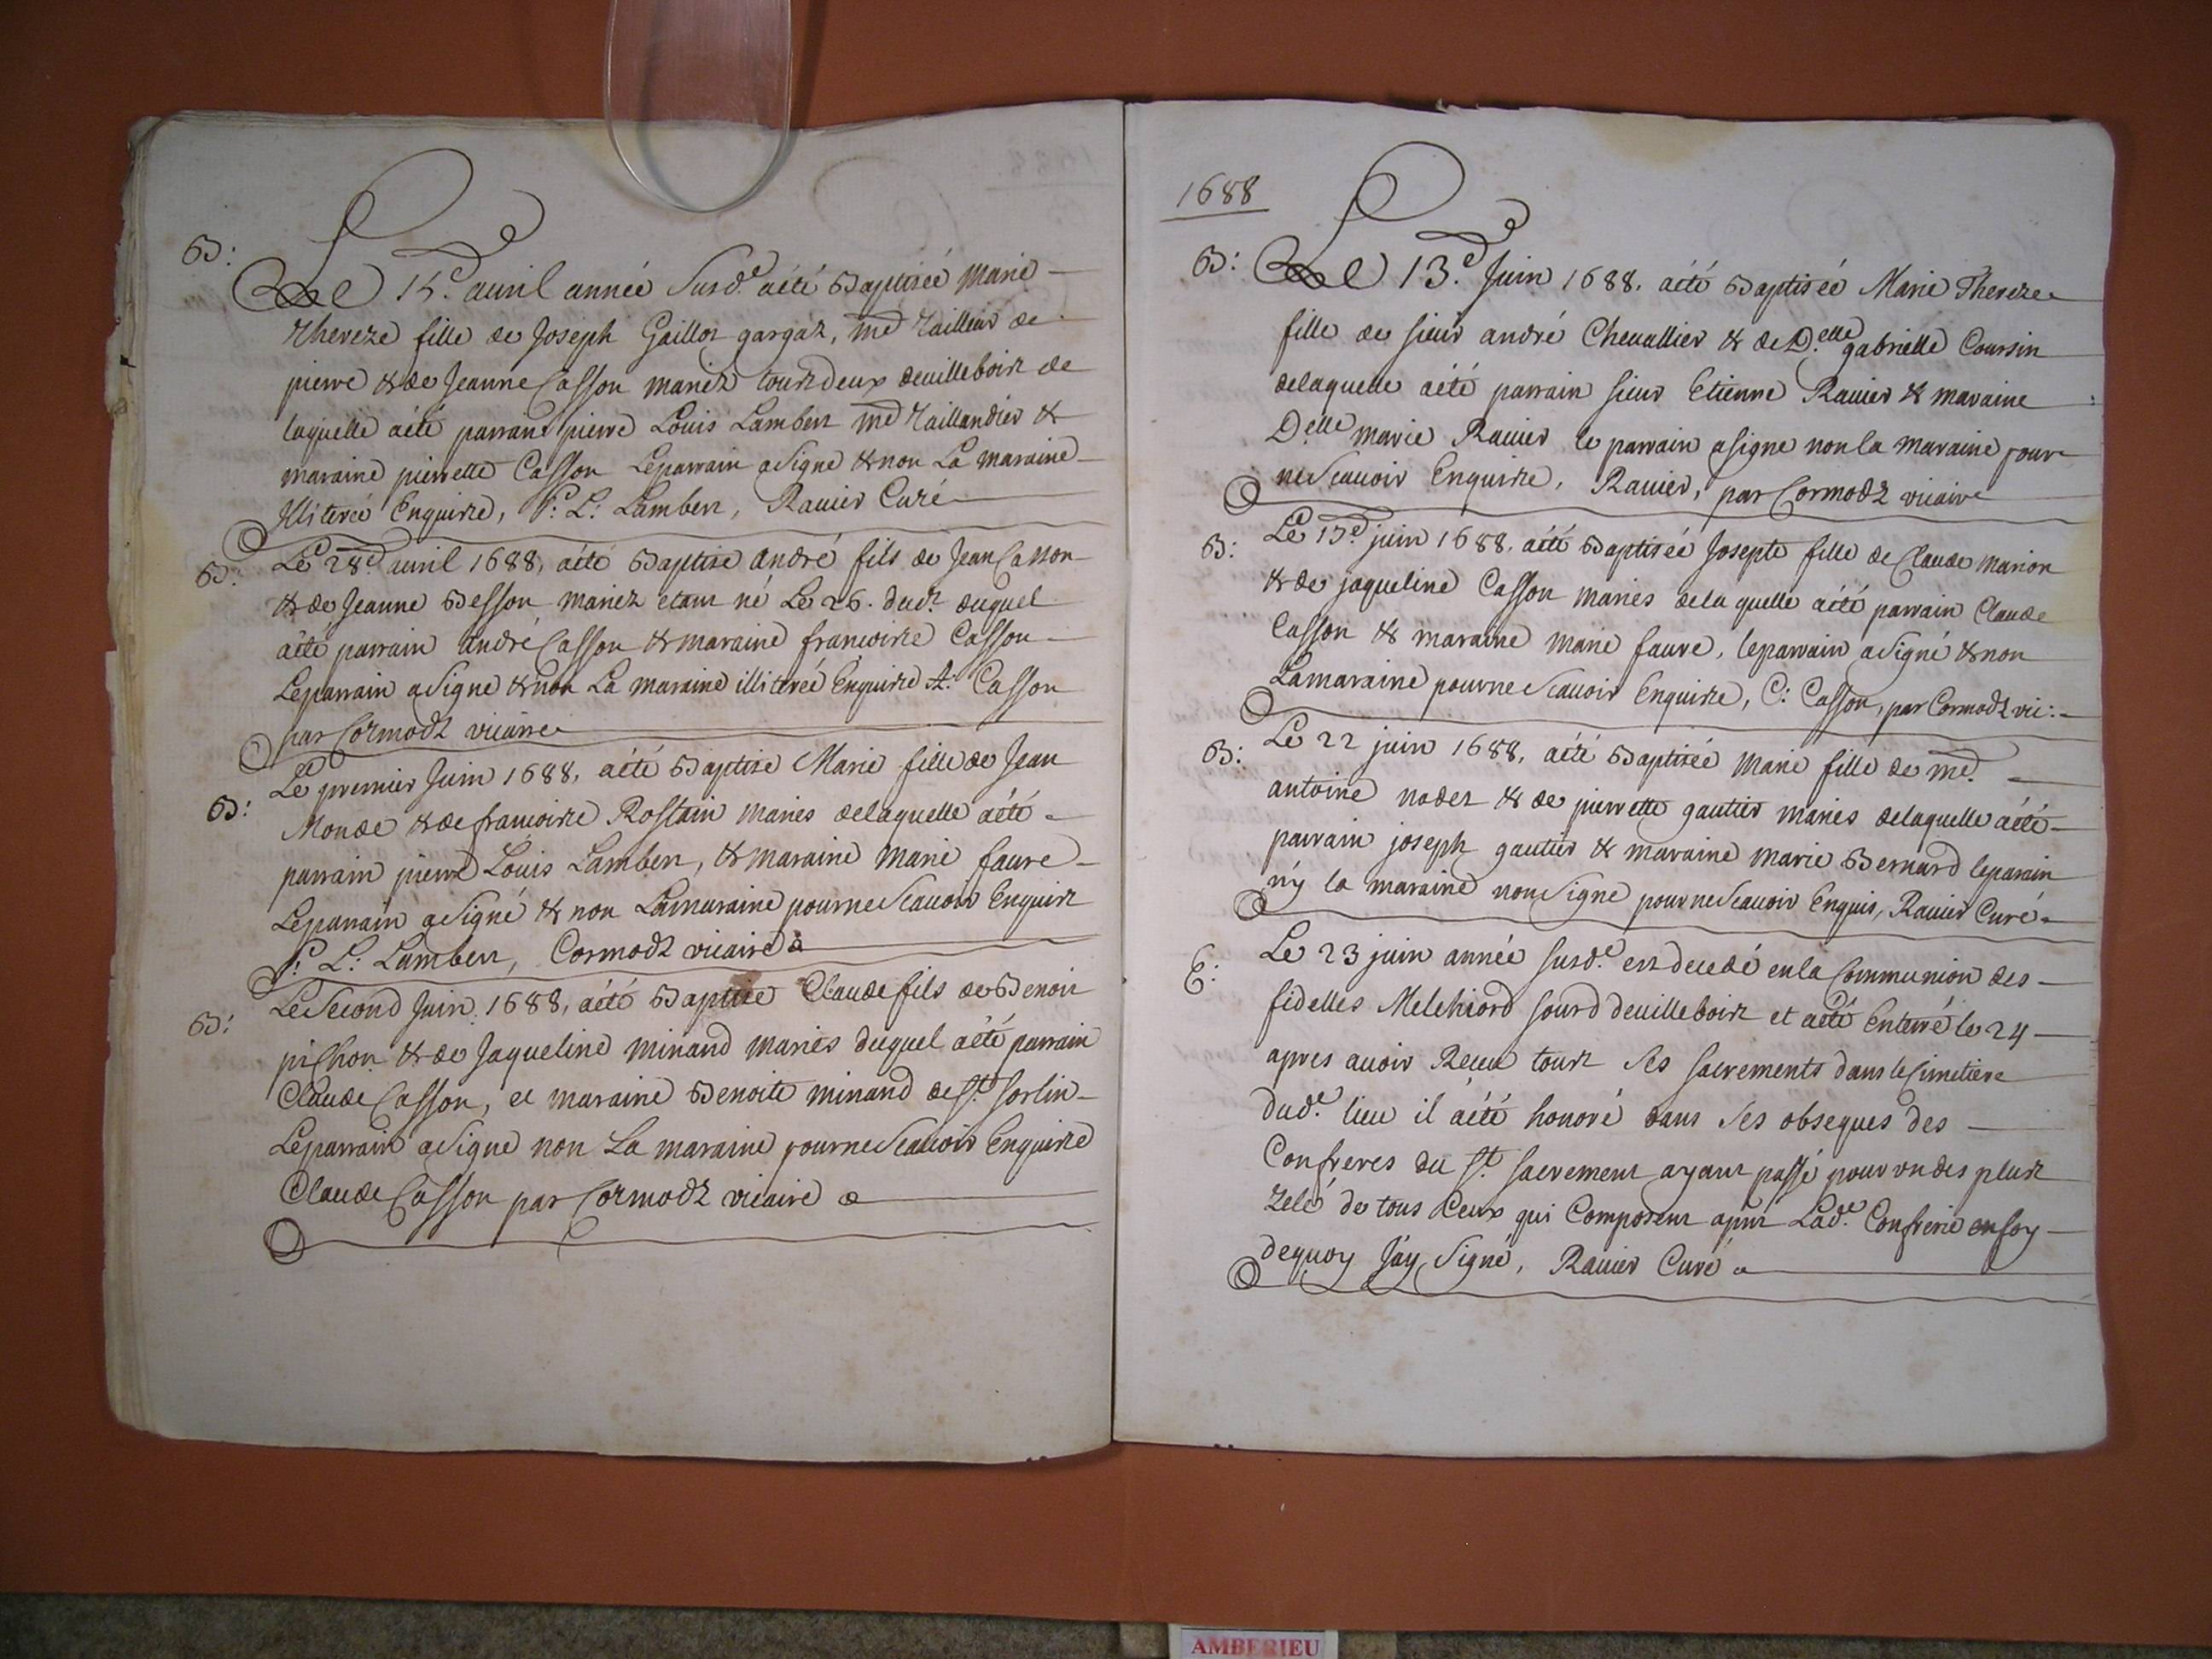 B:
Le 15e. auril année Susd.e aété Baptizée marie
Thereze fille de Joseph Gaillot gargat, md Tailleur de
pierre & de Jeanne Casson mariez tous deux de villebois de
laquelle aété parrain pierre Louis Lambert md Taillandier &
maraine pierrette Casson Leparrain asigné & non La maraine
Illiteré Enquise, P: L: Lambert, Rauier Curé
B:
Le 28e auril 1688, aété Baptizé andré fils de Jean Casson
& de Jeanne Besson mariez etant né Le 26. dud.t duquel
aété parrain andré Casson & maraine francoise Casson
Leparrain asigné & non La maraine illiterée Enquise A: Casson
par Cormodt vicaire
B:
Le premier Juin 1688, aété Baptizé Marie fille de Jean
Monde & de francoise Rostain mariés delaquelle aété
parrain pierre Louis Lambert, & maraine marie faure
Leparrain asigné & non Lamaraine pourne Scauoir Enquis
P: L: Lambert, Cormodt vicaire
B:
Le Second Juin 1688, aété Baptizé Claude fils de Benoit
pichon & de Jaqueline minand mariés duquel aété parrain
Claude Casson, et maraine Benoite minand de St. sorlin
Leparrain asigné non La maraine pourne Scauoir Enquise
Claude Casson par Cormodt vicaire
1688
B:
Le 13.e Juin 1688. aété Baptisée Marie Thereze
fille de sieur andré Cheuallier & de D.elle gabrielle Coursin
delaquelle aété parrain sieur Etienne Rauier & maraine
Delle marie Rauier le parrain asigné non la maraine pour
ne Scauoir Enquise, Rauier, par Cormodt vicaire
B:
Le 15e juin 1688. aété Baptisée Josepte fille de Claude marion
& de jaqueline Casson mariés dela quelle aété parrain Claude
Casson & maraine marie faure, leparrain asigné & non
Lamaraine pourne Scauoir Enquise, C: Casson, par Cormodt vic:
B:
Le 22 juin 1688, aété Baptisée marie fille de md.
antoine nodet & de pierrette gautier mariés delaquelle aété
parrain joseph gautier & maraine marie Bernard leparrain
n'y la maraine non Signé pourne Scauoir Enquis, Rauier Curé
E:
Le 23 juin année susd.e est decedé enla Communion des
fidelles Melchiord sourd deuillebois et aété Enterré le 24
apres auoir Receu tous Ses sacrements dans le Cimetiere
dud.t lieu il aété honoré dans Ses obseques des
Confreres du St. sacrement ayant passé pour un des plus
zelé de tous Ceux qui Composent Lad.e Confrerie en foy
dequoy Jáy Signé, Rauier Curé
AMBERIEU